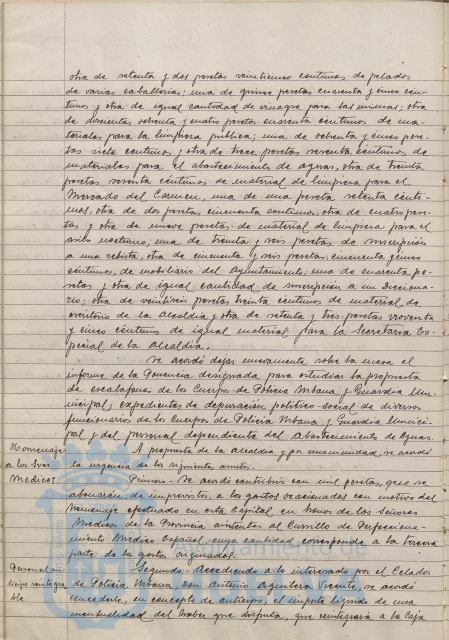 otra de setenta y dos pesetas veinticinco centimos de pelados
de varias caballerias; una de quince pesetas cuarenta y cinco cen-
timos y otra de igual cantidad de vinagre para las mismas; otra
de doscientas setenta y cuatro pesetas cuarenta centimos de ma-
teriales para la limpieza pública; una de ochenta y cinco pese-
tas siete centimos y otra de trece pesetas sesenta centimos de
materiales para el abastecimiento de aguas, otra de treinta
pesetas sesenta centimos de material de limpieza para el
Mercado del Carmen, una de una peseta setenta cénti-
mos, otra de dos pesetas cincuenta centimos, otra de cuatro pese-
tas y otra de nueve pesetas de material de limpieza para el
asilo nocturno; una de treinta y seis pesetas de suscripción
a una revista, otra de cincuenta y seis pesetas cincuenta y cinco
centimos, de mobiliario del Ayuntamiento; una de cuarenta pe-
setas y otra de igual cantidad de suscripción a un Dicciona-
rio; otra de veintiseis pesetas treinta centimos de material de
escritorio de la Alcaldia y otra de setenta y tres pesetas noventa
y cinco céntimos de igual material para la Secretaria Es-
pecial de la Alcaldia.
Se acordó dejar nuevamente sobre la mesa el
informe de la Ponencia designada para estudiar la propuesta
de escalafones de los Cuerpos de Policia Urbana y Guardia Mu-
nicipal, expedientes de depuración politico-social de diversos
funcionarios de los Cuerpos de Policia Urbana y Guardia Munici-
pal y del personal dependiente del Abastecimiento de Aguas.
Homenaje A propuesta de la Alcaldia y por unanimidad, se acordó
a los Sres la urgencia de los siguientes asuntos.
Medicos Primero - Se acordó contribuir con mil pesetas, que se
abonarán de imprevistos, a los gastos ocasionados con motivo del
Homenaje efectuado en esta Capital en honor de los Señores
Medicos de la Provincia asistentes al Cursillo de Perfecciona-
miento Medico Español, cuya cantidad corresponde a la tercera
parte de los gastos originados.
Personal an Segundo - Accediendo a lo interesado por el Celador
ticipo reintegra de Policia Urbana, Don Antonio Aguilera Vicente, se acordó
ble concederle, en concepto de anticipo, el importe liquido de una
mensualidad del haber que disfruta, que reintegrará a la Caja